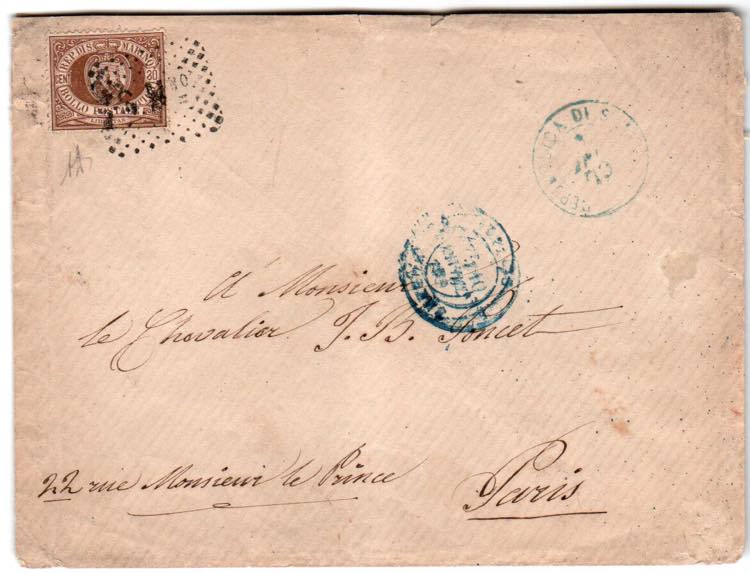 REP. DI S. MARINO
BOLLO POSTALE
REPUBBLICA DI S.
À Monsieur
le Chevalier J. B. Poncet
22 rue Monsieur le Prince
Paris